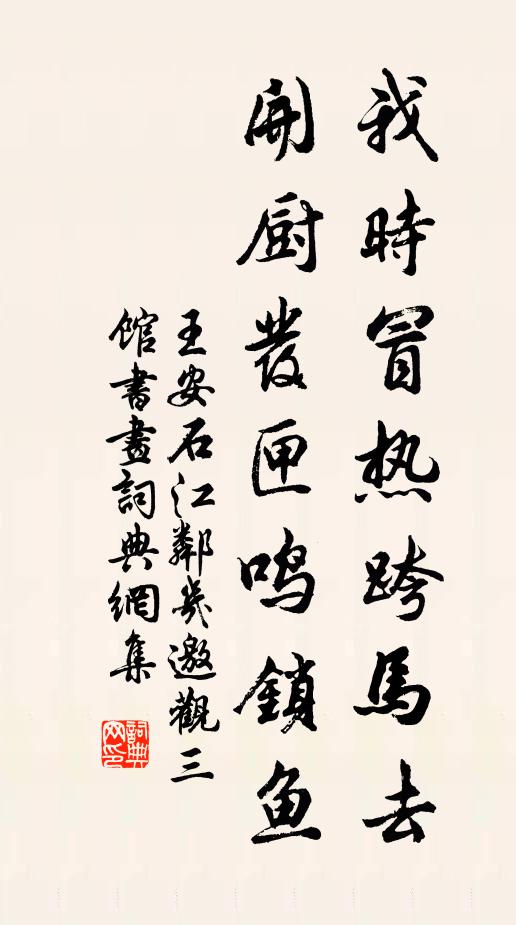 我時冒热跨馬去
開厨發匣鸣鎖魚
王安石江鄰幾邀觀三
館書畫詞典網集
詞典
网印